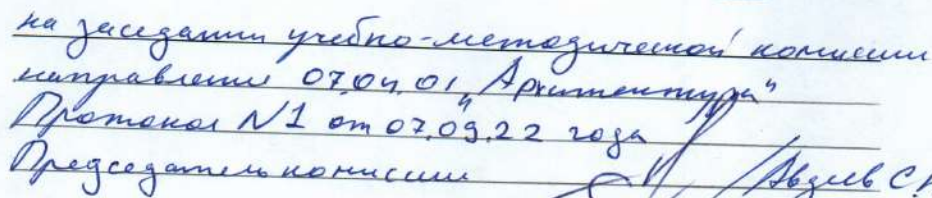 на заседании учебно-методической комиссии
направления 07.04.01 „Архитектура"
Протокол N1 от 07.09.22 года
Председатель комиссии / Авдеев С.